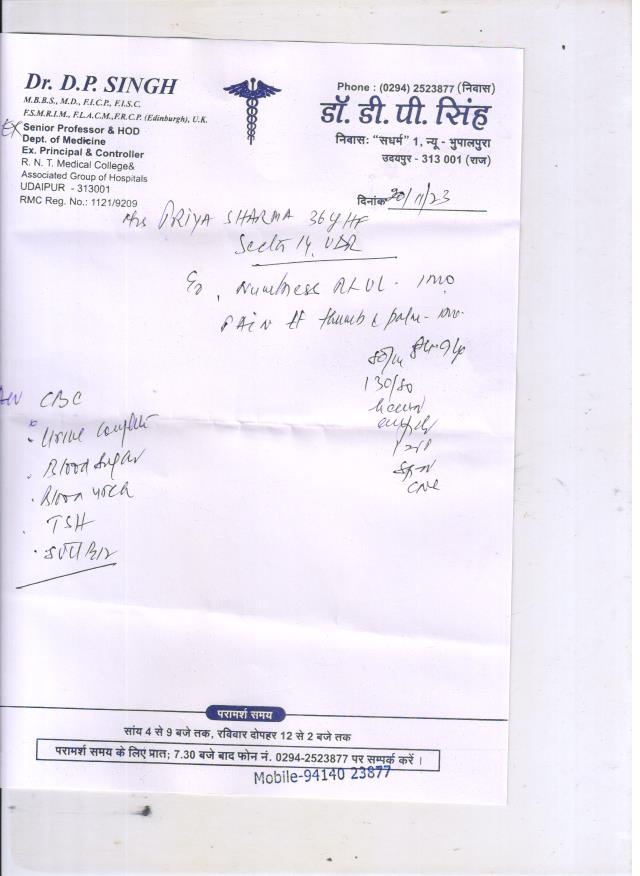 Dr. D.P. SINGH
M.B.B.S., M.D., F.I.C.P., F.I.S.C,
F.S.M.R.I.M., F.L.A.C.M.,F.R.C.P. (Edinburgh), U.K.
EX Senior Professor & HOD
Dept. of Medicine
Ex. Principal & Controller
R. N. T. Medical College&
Associated Group of Hospitals
UDAIPUR - 313001
RMC Reg. No.: 1121/9209
Phone : (0294) 2523877 (निवास)
डॉ. डी. पी. सिंह
निवासः "सधर्म" 1, न्यू - भुपालपुरा
उदयपुर - 313 001 (राज)
दिनांक 20/11/23
Mrs PRIYA SHARMA 36y
Sector 14, UDR
Numbness
PAIN thumb & palm
130/80
CBC
Urine Complete
Blood Sugar
Blood urea
TSH
B12
परामर्श समय
सांय 4 से 9 बजे तक, रविवार दोपहर 12 से 2 बजे तक
परामर्श समय के लिए प्रात; 7.30 बजे बाद फोन नं. 0294-2523877 पर सम्पर्क करें ।
Mobile-94140 23877